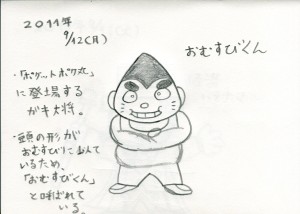 2011年
9/12(月)
おむすびくん
・「ポケットポク丸」
に登場する
ガキ大将。
・頭の形が
おむすびに似て
いるため、
「おむすびくん」
と呼ばれて
いる。